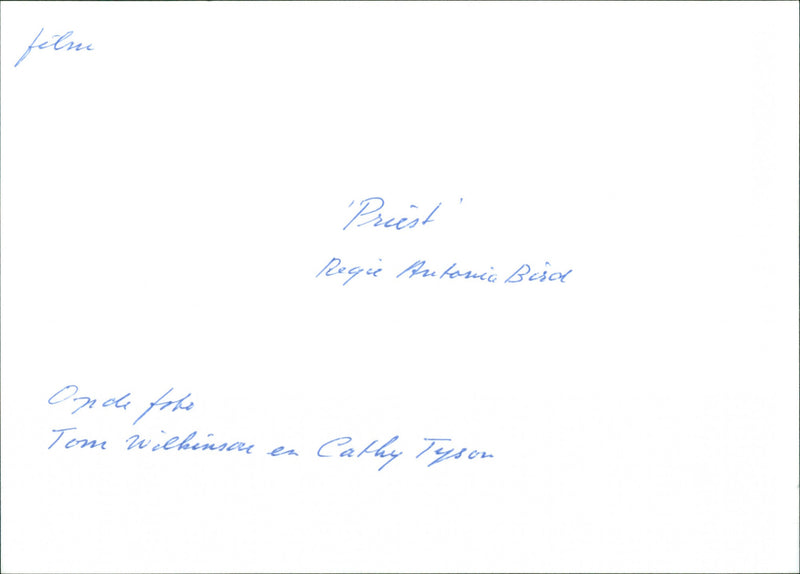 film
'Priest'
Regie Antonia Bird
Op de foto
Tom Wilkinson en Cathy Tyson